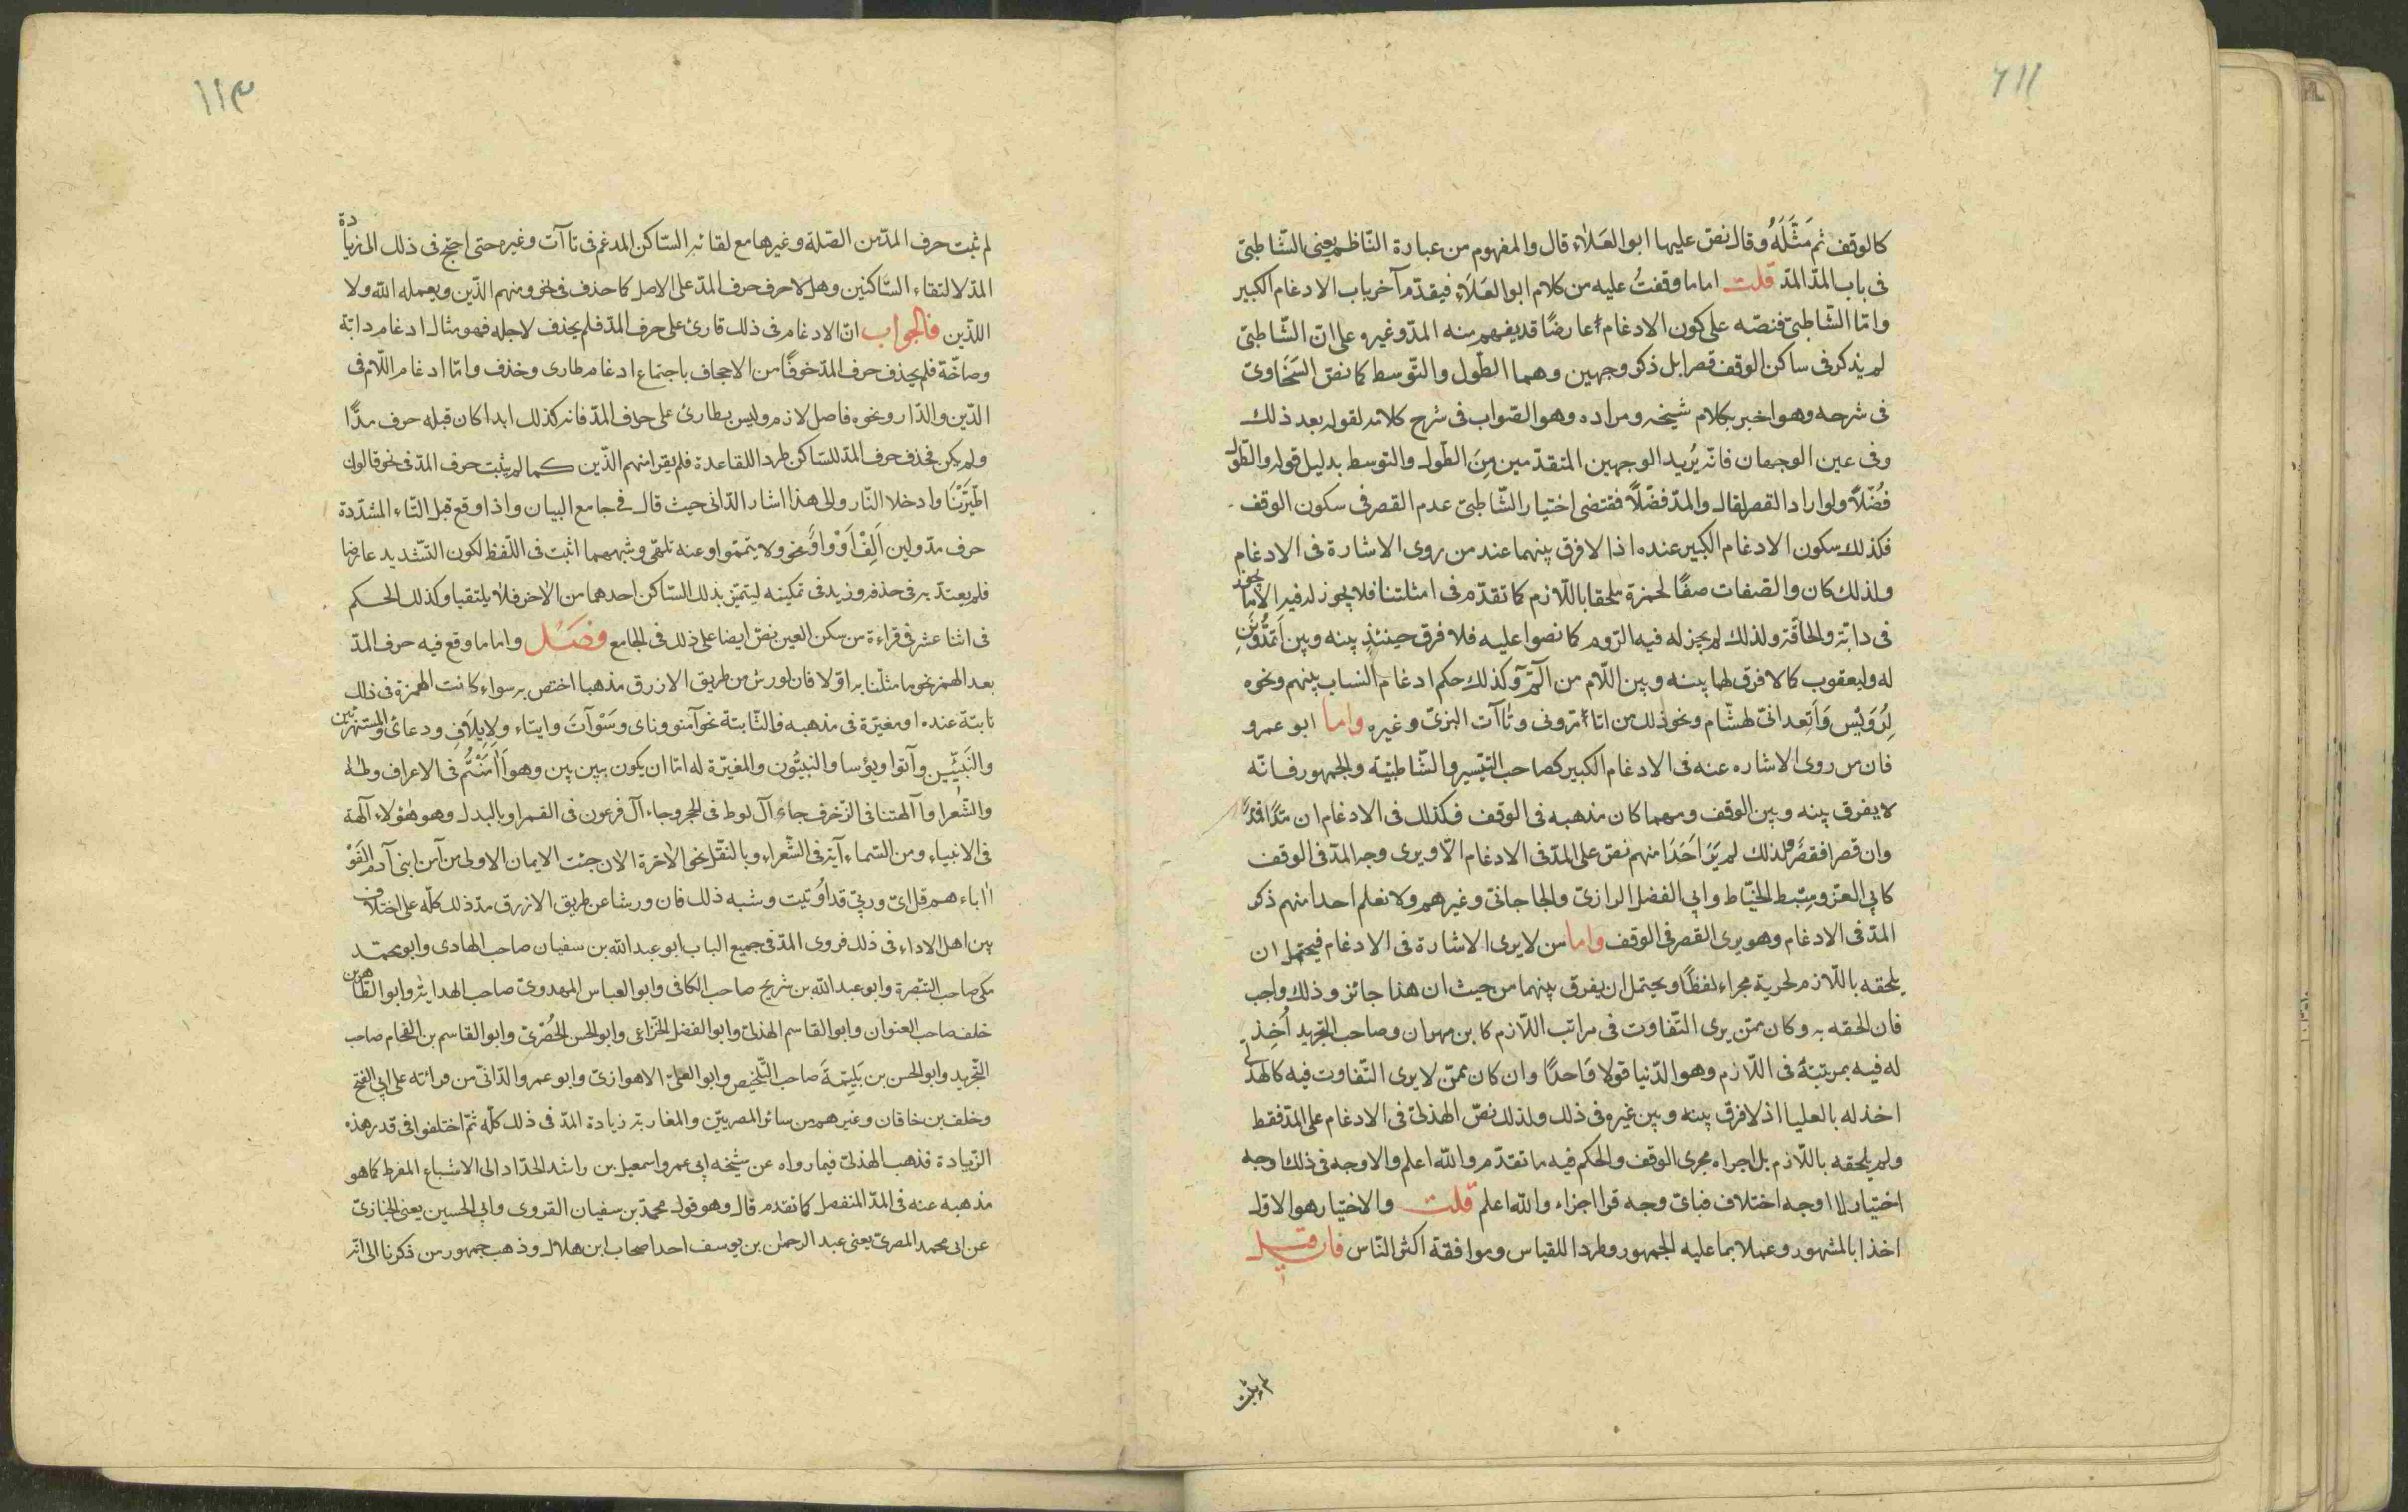 ١١٢
كالوقف ثم مَثَّلَهُ وقال نص عليها ابو العَلاء قال والمفهوم من عبارة النّاظم يعنى الشّاطبىّ
فى باب المدّ المدّ قلت اما ما وقفتُ عليه من كلام ابو العَلَاءِ فيقدّم آخر باب الادغام الكبير
وامّا الشّاطبىّ فنصّه على كون الادغام عارضًا قد يفهم منه المدّ وغيره على انّ الشّاطبىّ
لم يذكر فى ساكن الوقف قصرا بل ذكر وجهين وهما الطّول والتّوسط كما نصّ السَخَاوىّ
فى شرحه وهو اخبر بكلام شيخه ومراده وهو الصّواب فى شرح كلامه لقوله بعد ذلك
وفى عين الوجهان فانّه يُريد الوجهين المتقدّمين مِنَ الطّول والتوسط بدليل قوله والطّول
فُضّلاً ولو اراد القصر لقال والمدّ فضّلاً فقتضى اختيار الشّاطبىّ عدم القصر فى سكون الوقف
فكذلك سكون الادغام الكبير عنده اذا لا فرق بينهما عند من روى الاشارة فى الادغام
ولذلك كان والصّفات صفًا لحمزة ملحقا باللّازم كما تقدّم فى امثلتنا فلا يجوز له فيه الا ما يجوز
فى دابّة والحاقّة ولذلك لم يجز له فيه الرّوم كما نصوا عليه فلا فرق حينئذٍ بينه وبين اَتمُدُّونَنِ
له وليعقوب كما لا فرق لهما بينه وبين اللّام من آلمّ وكذلك حكم ادغام انساب بينهم ونحوه
لِرُوَيْس وَاَتعدانىّ لهشّام ونحو ذلك من اتاْمرّونى وتآآت البزىّ وغيره واما ابو عمرو
فان من روى الاشاره عنه فى الادغام الكبير كصاحب التّيسير والشّاطبيّة والجمهور فانّه
لا يفرق بينه وبين الوقف ومهما كان مذهبه فى الوقف فكذلك فى الادغام ان مدًا فمدًا
وان قصرا فقصرًا ولذلك لم يَرَ اَحَدًا منهم نصّ على المدّ فى الادغام الّا ويرى وجه المدّ فى الوقف
كابى العزّ وسِبْط الخيّاط وابى الفضل الرازىّ والجاجانىّ وغيرهم ولا نعلم احدا منهم ذكر
المدّ فى الادغام وهو يرى القصر فى الوقف واما من لا يرى الاشارة فى الادغام فيحتمل ان
يلحقه باللّازم لجريه مجراه لفظًا ويحتمل ان يفرق بينهما من حيث ان هذا جائز وذلك واجب
فان الحقه به وكان ممّن يرى التّفاوت فى مراتب اللّازم كابن مهران وصاحب التّجريد اُخِذ
له فيه بمرتبته فى اللّازم وهو الدّنيا قولا وَاحدًا وان كان ممّن لا يرى التّفاوت فيه كالهذلىّ
اخذ له بالعليا اذ لا فرق بينه وبين غيره فى ذلك ولذلك نصّ الهذلىّ فى الادغام على المدّ فقط
ولم يلحقه باللّازم بل اجراه مجرى الوقف والحكم فيه ما تقدّم والله اعلم والاوجه فى ذلك اوجه
اختيار لا اوجه اختلاف فباىّ وجه قرا اجزاء والله اعلم قلت والاختيار هو الاوّل
اخذا بالمشهور وعملا بما عليه الجمهور وطردا للقياس وموافقة اكثر النّاس فان قيل
لم ثبت
١١٣
لم ثبت حرف المدّ من الصّلة وغيرها مع لقائه السّاكن المدغم فى تاآت وغيره حتى احتج فى ذلك الى زيادة
المدّ لالتقاء السّاكنين وهلا حرف حرف المدّ على الاصل كما حذف فى نحو ومنهم الذّين ويعمله الله ولا
اللذّين فالجواب انّ الادغام فى ذلك قارئ على حرف المدّ فلم يحذف لاجله فهو مثال ادغام دابّة
وصاخّة فلم يحذف حرف المدّ خوفًا من الاجحاف باجتماع ادغام طارى وخذف وامّا ادغام اللّام فى
الذّين والدّار ونحوه فاصل لازم وليس بطارئ على حرف المدّ فانه كذلك ابدا كان قبله حرف مدًّا
ولم يكن فحذف حرف المدّ للسّاكن طردا للقاعدة فلم يقرا منهم الذّين كما لم يثبت حرف المدّ فى نحو قالوا
اطّيّرْنَا وادخلا النّار والى هذا اشار الدّانى حيث قال فى جامع البيان واذا وقع قبل التّاء المشدّدة
حرف مدّ ولين اَلِفْ اَوْ وَاوٌ نحو ولا يتممّوا وعنه تلهّى وشبههما اثبت فى اللّفظ لكون التّشديد عارضا
فلم يعتدّ به فى حذفه وزيد فى تمكينه ليتميّز بذلك السّاكن احدهما من الآخر فلا يلتقيا وكذلك الحكم
فى اثنا عشر فى قراءة من سكن العين نصّ ايضا على ذلك فى الجامع فصَلْ واما ما وقع فيه حرف المدّ
بعد الهمز نحو ما مثّلنا به اوّلا فان لورش من طريق الازرق مذهبا اختص به سواء كانت الهمزة فى ذلك
ثابتة عنده او مغيّرة فى مذهبه فالثّابتة نحو آمنو وناى وسَوْآتَ وايتاء ولِاِيلَافِ ودعائى والمستهزئين
والنّبيّين وآتوا ويؤسا والنبيُّون والمغيّرة له امّا ان يكون بين بين وهو اَاٰمَنْتُم فى الاعراف وطٰهٰ
والشّعرا وآ آلهتنا فى الزّخرف جاء آل لوط فى الحجر وجاء آل فرعون فى القمر او بالبدل وهو هٰؤلاء آلهة
فى الانبياء ومن السّماء آية فى الشّعراء وبالنقل نحو الاخرة الان جئت الايمان الاولى من آمن ابنى آدم الفَوْ
ااباءهم قل اىّ وربّى قد اُوتيت وشبه ذلك فان ورشا عن طريق الازرق مدّ ذلك كلّه على اختلاف
بين اهل الاداء فى ذلك فروى المدّ فى جميع الباب ابو عبد الله بن سفيان صاحب الهادى وابو محمّد
مكى صاحب التبصرة وابو عبد الله بن شريح صاحب الكافى وابو العباس المهدوىّ صاحب الهداية وابو الطّاهر بن
خلف صاحب العنوان وابو القاسم الهذلىّ وابو الفضل الخزاعى وابو الحسن الحُصْرىّ وابو القاسم بن الفحّام صاحب
التّجريد وابو الحسن بن بَلِيّمَةَ صاحب التّلخيص وابو العلىّ الاهوازىّ وابو عمرو الدّانىّ من قرائته على ابى الفتح
وخلف بن خاقان وغيرهم من سائر المصريّين والمغاربة زيادة المدّ فى ذلك كلّه ثمّ اختلفوا فى قدر هذه
الزّيادة فذهب الهذلىّ فيما رواه عن شيخه ابى عمرو اسمعيل بن راشد الحدّاد الى الاشباع المفرط كما هو
مذهبه عنه فى المدّ المنفصل كما تقدم قال وهو قول محمّد بن سفيان القروى وابى الحسين يعنى الخبازىّ
عن ابى محمد المصرىّ يعنى عبد الرحمٰن بن يوسف احد اصحاب ابن هلال وذهب جمهور من ذكرنا الى انّه